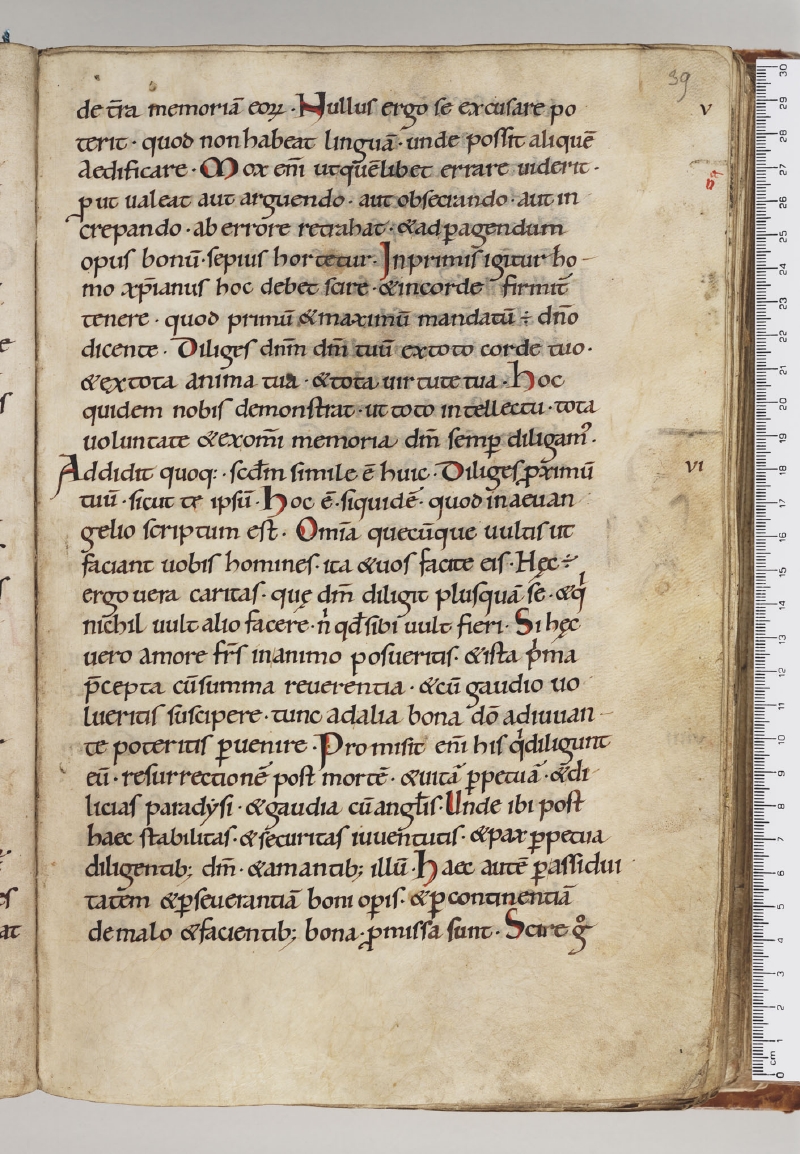 39
de t̄ra memoriā eoꝝ · Nullus ergo se excusare po
v
terit · quod non habeat linguā · unde possit aliquē
Aedificare · Mox eni̅ ut quēlibet errare uiderit ·
put ualeat aut arguendo · aut obsecrando · aut in
crepando · ab errore retrahat · & ad ꝑagendum
opus bonū · sepius hortetur · Inprimis igitur ho-
mo xp̄ianus hoc debet scire · & incorde firmit̄
tenere · quod primū & maximū mandatū ÷ dn̄o
dicente · Diliges dn̄m dm̄ tuū ex toto corde tuo ·
& ex tota anima tua · & tota uirtute tua · Hoc
quidem nobis demonstrat · ut toto intellectu · tota
uoluntate & ex om̄i memoria dm̄ semꝑ diligam᷒ ·
Addidit quoq: · scd̄m simile ē huic · Diliges px̄imū
vi
tuū · sicut te ipsū · Hoc ē · siquidē · quod in aeuan
gelio scriptum est · Om̄ia quecūque uultis ut
faciant uobis homines · ita & uos facite eis · Hęc ÷
ergo uera caritas · quę dm̄ diligit plusquā se · & qⁱ
nichil uult alio facere · nⁱ qd̄ sibi uult fieri · Si hęc
uero amore fr̄s in animo posueritis · & ista pⁱma
p̄cepta cū summa reuerentia · & cū gaudio uo
lueritis suscipere · tunc ad alia bona dō adiuuan-
te poteritis ꝑuenire · Promisit eni̅ his qⁱ diligunt
eū · resurrectionē post mortē · & uitā ꝑpetuā · & di
licias paradẏsi · & gaudia cū angl̄is · Unde ibi post
haec stabilitas · & securitas iuuentutis · & pax ꝑpetua
diligentib; dm̄ · & amantib; illū · Haec autē ꝑ assidui
tatem & ꝑseuerantiā boni opis · & ꝑ continentiā
de malo & facientib; bona · ꝓmissa sunt · Scire gͦ